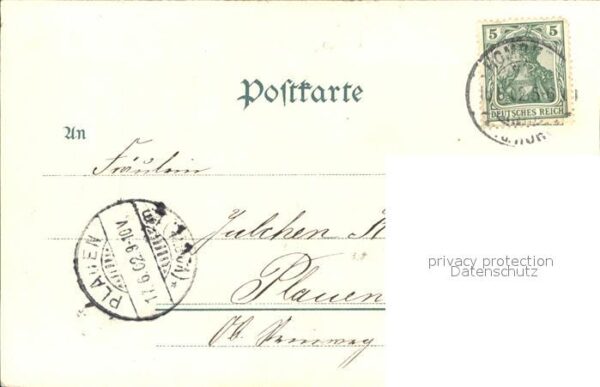 5 5
DEUTSCHES REICH
Postkarte
An
Fräulein
Julchen K
Plauen
Ob.
PLAUEN
17.6.02.9-10V.
privacy protection
Datenschutz